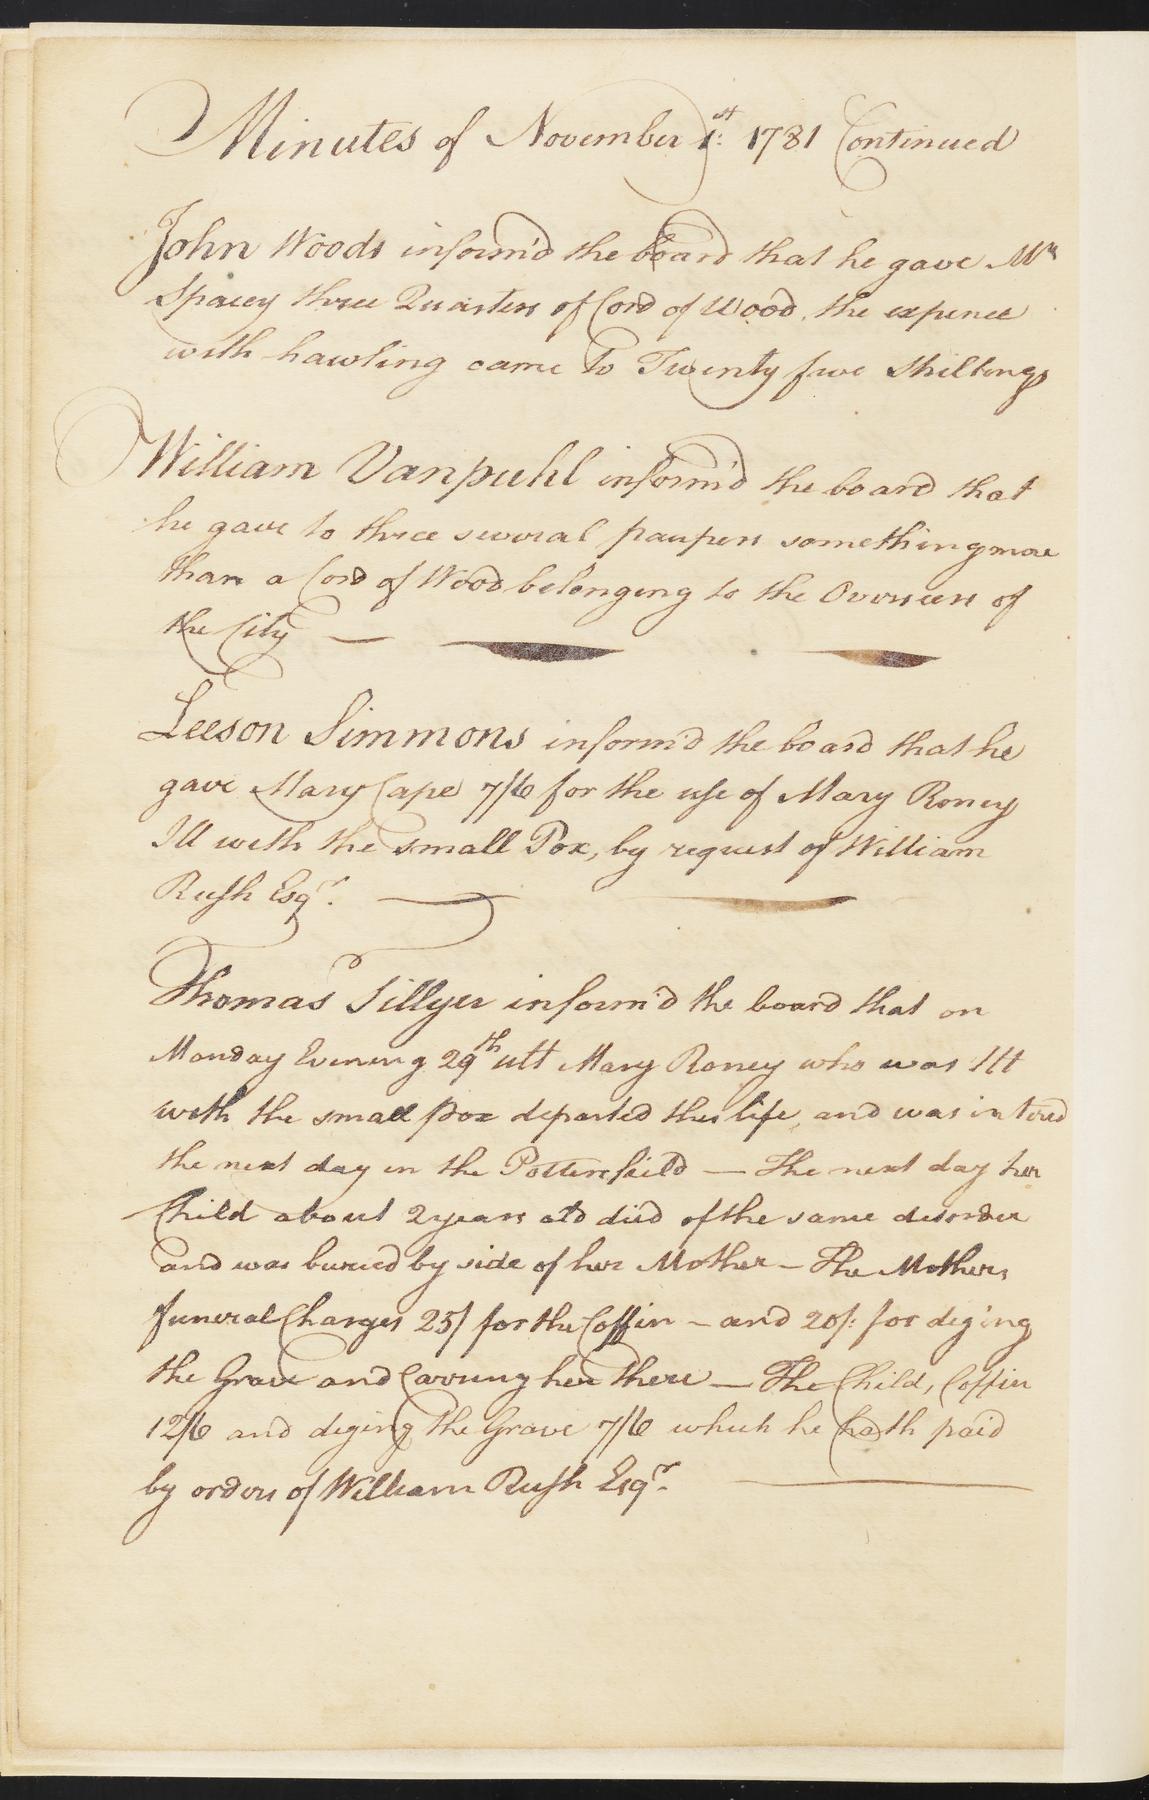 Minutes of November 1st: 1781 Continued
John Woods inform'd the board that he gave Mrs
Spacey three Quarters of Cord of Wood, the expence
with hawling came to Twenty five Shillings
William Vanpuhl inform'd the board that
he gave to three several paupers something more
than a Cord of Wood belonging to the Overseers of
the City —
Leeson Simmons inform'd the board that he
gave Mary Cape 7/6 for the use of Mary Roney
Ill with the small Pox, by request of William
Rush Esqr.
Thomas Tillyer inform'd the board that on
Monday Evening 29th ult Mary Roney who was Ill
with the small pox departed this life, and was intered
the next day in the Pottersfield — The next day her
Child about 2 years old died of the same disorder
and was buried by side of her Mother — The Mothers
funeral Charges 25/ for the Coffin — and 20/: for diging
the Grave and Carring her there — The Child, Coffin
12/6 and diging the Grave 7/6 which he hath paid
by orders of William Rush Esqr.